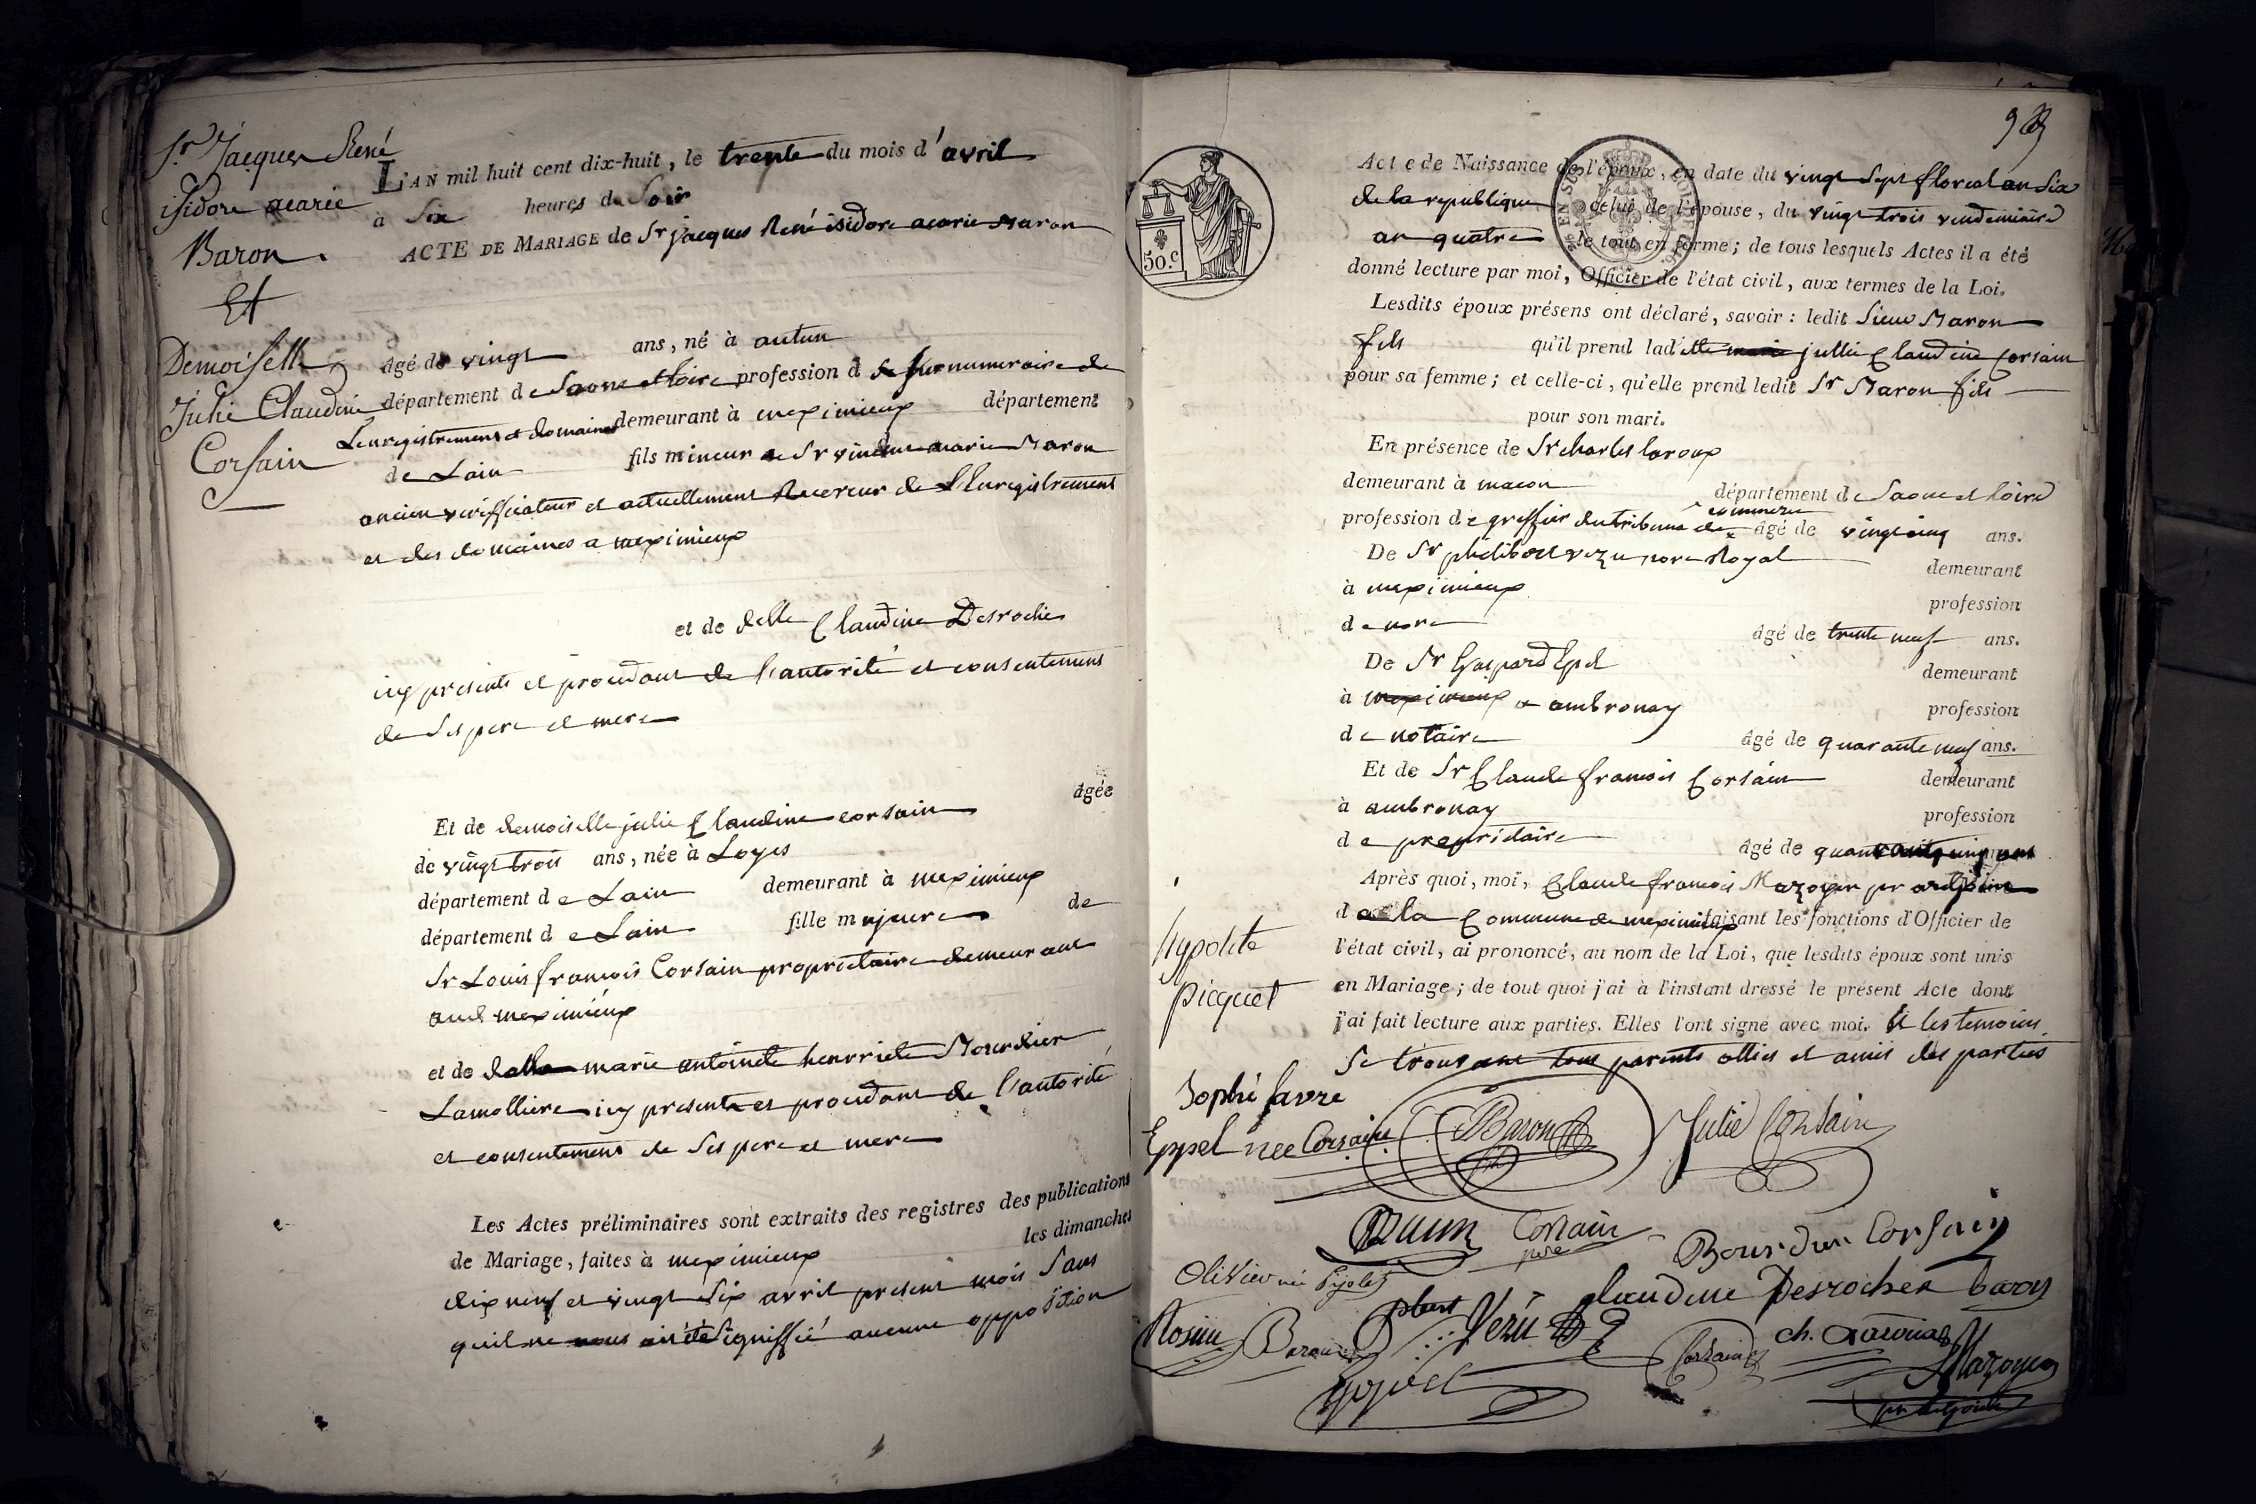 Sr. Jacques René
isidore acarie
Baron.
Et
Demoiselle
Julie Claudine
Corsain
L'AN mil huit cent dix-huit, le trente du mois d'avril
à Six heures du Soir
ACTE DE MARIAGE de Sr jacques René isidore acarie Baron
âgé de vingt ans, né à autun
département de Saone et loire profession de surnumeraire de
Lenregistrement et domaines demeurant à meximieux département
de Lain fils mineur de Sr vincent marie Baron
ancien verifficateur et actuellement Receveur de L'Enregistrement
et des domaines a meximieux
et de delle Claudine Desroches
icy presents et procedant de l'autorité et consentement
de Ses pere et mere
Et de demoiselle julie Claudine corsain âgée
de vingt trois ans, née à Loyes
département de Lain demeurant à meximieux
département de Lain fille majeure de
Sr Louis françois Corsain propriétaire demeurant
aud meximieux
et de delle marie antoinette henriette Bourdier
Lamolliere icy presents et procedant de l'autorité
et consentement de Ses pere et mere
Les Actes préliminaires sont extraits des registres des publications
de Mariage, faites à meximieux les dimanches
dix neuf et vingt Six avril present mois Sans
quil ne nous ait été Signiffié aucune opposition
50.c
Acte de Naissance de l'époux, en date du vingt Sept floreal an Six
de la republique celui de l'épouse, du vingt trois vendemiaire
an quatre le tout en forme; de tous lesquels Actes il a été
donné lecture par moi, Officier de l'état civil, aux termes de la Loi.
Lesdits époux présens ont déclaré, savoir: ledit Sieur Baron
fils qu'il prend lad julie Claudine Corsain
pour sa femme; et celle-ci, qu'elle prend ledit Sr Baron fils
pour son mari.
En présence de Sr charles
demeurant à macon département de Saone et loire
commerce
profession de greffier du tribunal de âgé de vingt cinq ans.
De Sr philibert vezu nore Royal demeurant
à meximieux profession
de nore âgé de trente neuf ans.
De Sr Gaspard Epel demeurant
à meximieux a ambronay profession
de notaire âgé de quarante neuf ans.
Et de Sr Claude françois Corsain demeurant
à ambronay profession
de propriétaire âgé de quarante cinq ans
Après quoi, moi, Claude françois Mazoyer pr adjoint
de la Commune de meximieux faisant les fonctions d'Officier de
l'état civil, ai prononcé, au nom de la Loi, que lesdits époux sont unis
en Mariage; de tout quoi j'ai à l'instant dressé le présent Acte dont
j'ai fait lecture aux parties. Elles l'ont signé avec moi. Et les temoins
Se trouvant tous parents alliés et amis des parties
hypolite
picquet
Sophie favre
Eppel née Corsain Baron fils Julie Corsain
Baron Corsain
pere
Bourdier Corsain
Olivier née
Claudine Desroches baron
Rosine Baron
pbert Vezu
Corsain
Eppel
Mazoyer
pr adjoint